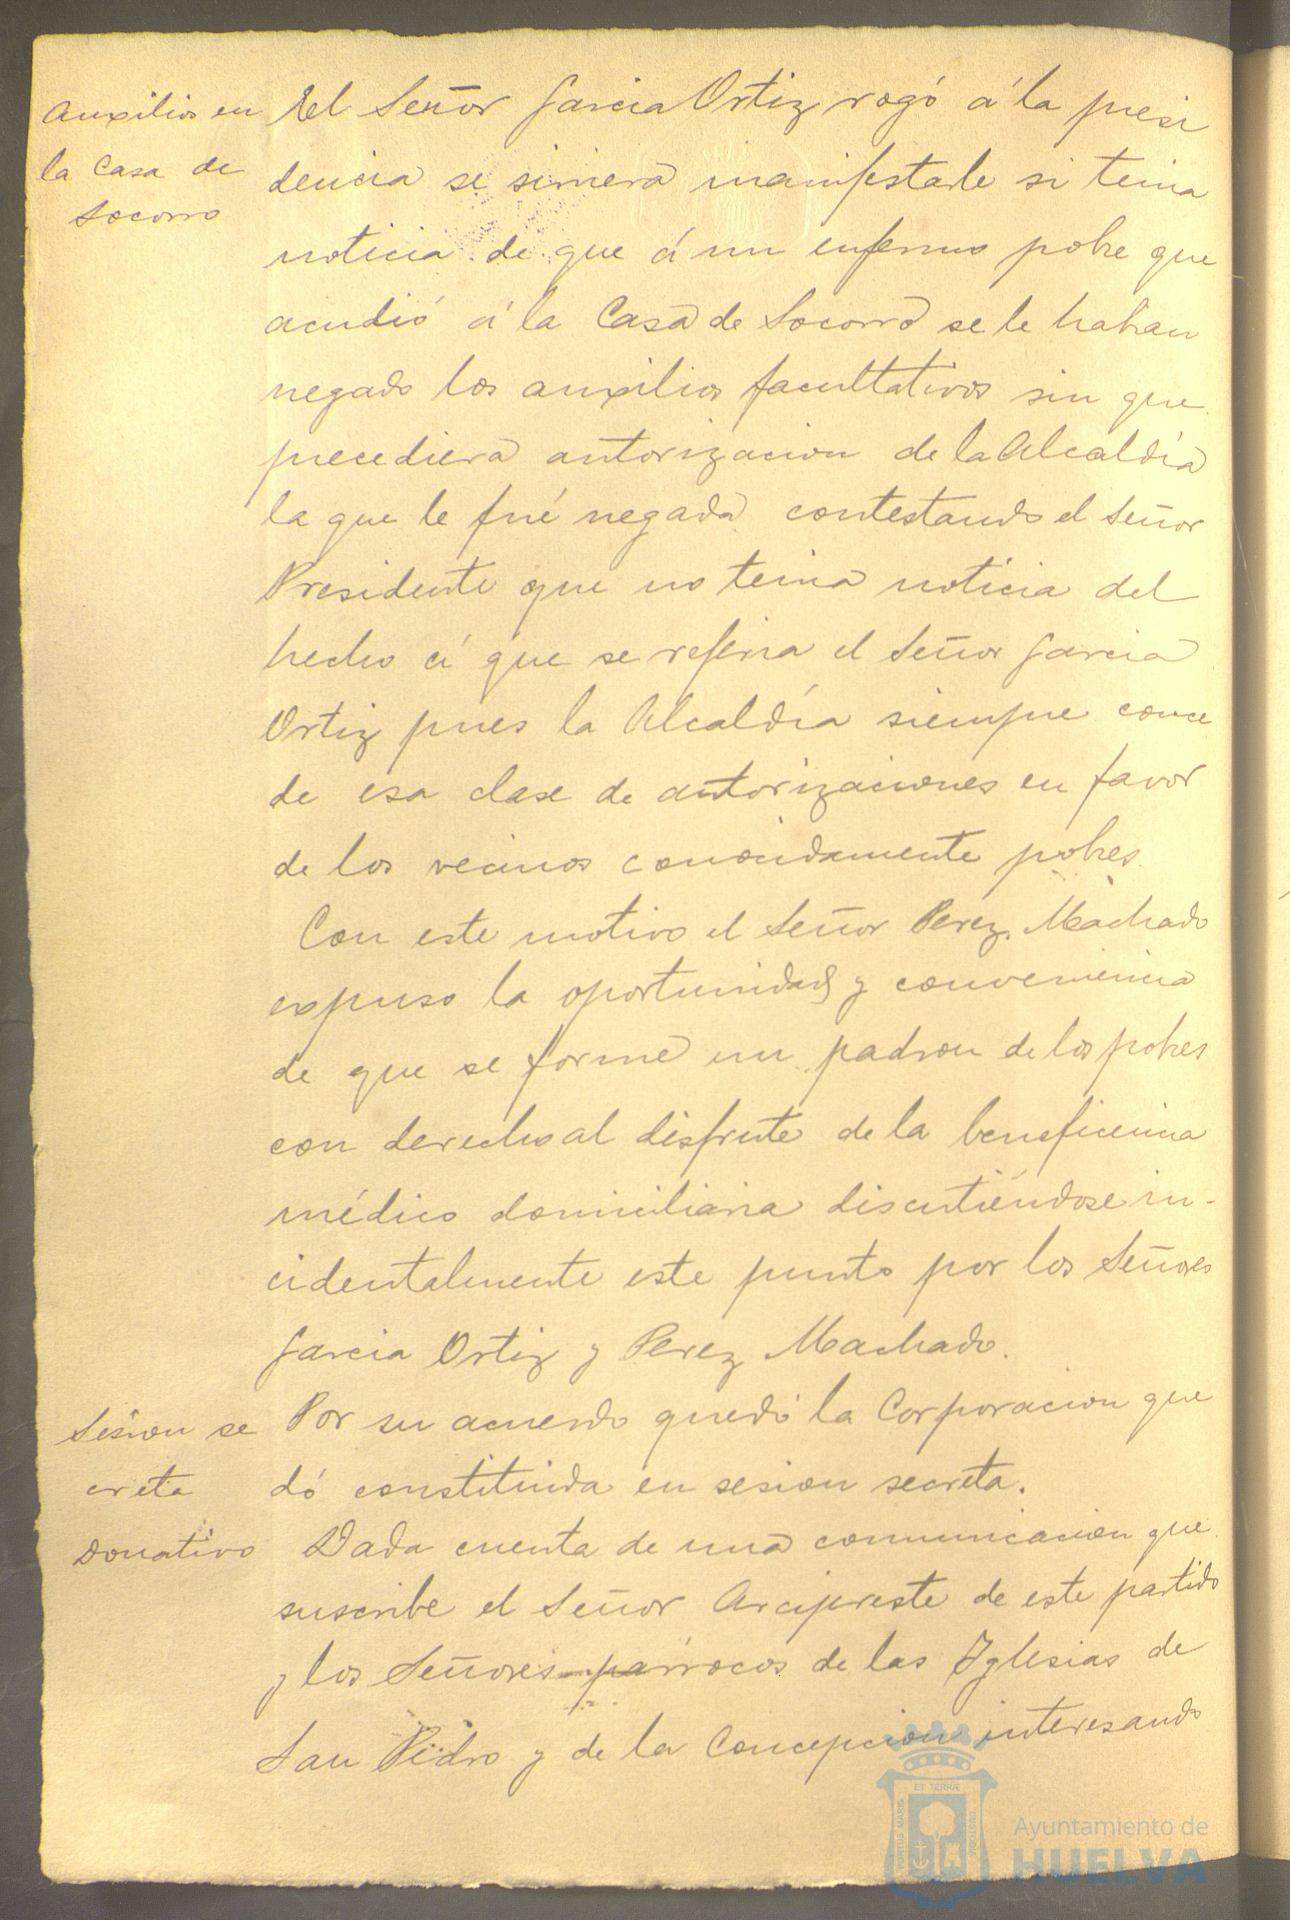 Auxilios en
la Casa de
Socorro
El Señor Garcia Ortiz rogó á la presi
dencia se sirviera manifestarle si tenia
noticia de que á un enfermo pobre que
acudió á la Casa de Socorro se le habian
negado los auxilios facultativos sin que
precediera autorizacion de la Alcaldía
la que le fué negada contestando el Señor
Presidente que no tenia noticia del
hecho á que se referia el Señor Garcia
Ortiz pues la Alcaldía siempre conce
de esa clase de autorizaciones en favor
de los vecinos conocidamente pobres.
Con este motivo el Señor Perez Machado
expuso la oportunidad y conveniencia
de que se forme un padron de los pobres
con derecho al disfrute de la beneficencia
médico domiciliaria discutiéndose in-
cidentalmente este punto por los Señores
Garcia Ortiz y Perez Machado.
Sesion se
creta
Por su acuerdo quedó la Corporacion que
dó constituida en sesion secreta.
Donativo
Dada cuenta de una comunicacion que
suscribe el Señor Arcipreste de este partido
y los Señores parrocos de las Iglesias de
San Pedro y de la Concepcion interesando
ET TERRÆ
PORTUS MARIS
CUSTODIA
Ayuntamiento de
HUELVA